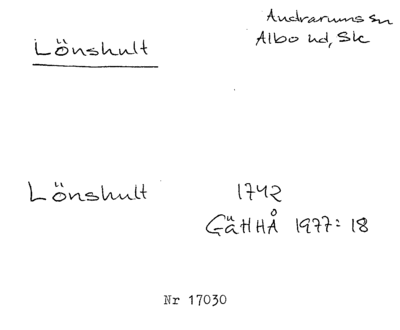 Lönshult
Andrarums sn
Albo hd, Sk
Lönshult 1742
GäHHÅ 1977: 18
Nr 17030